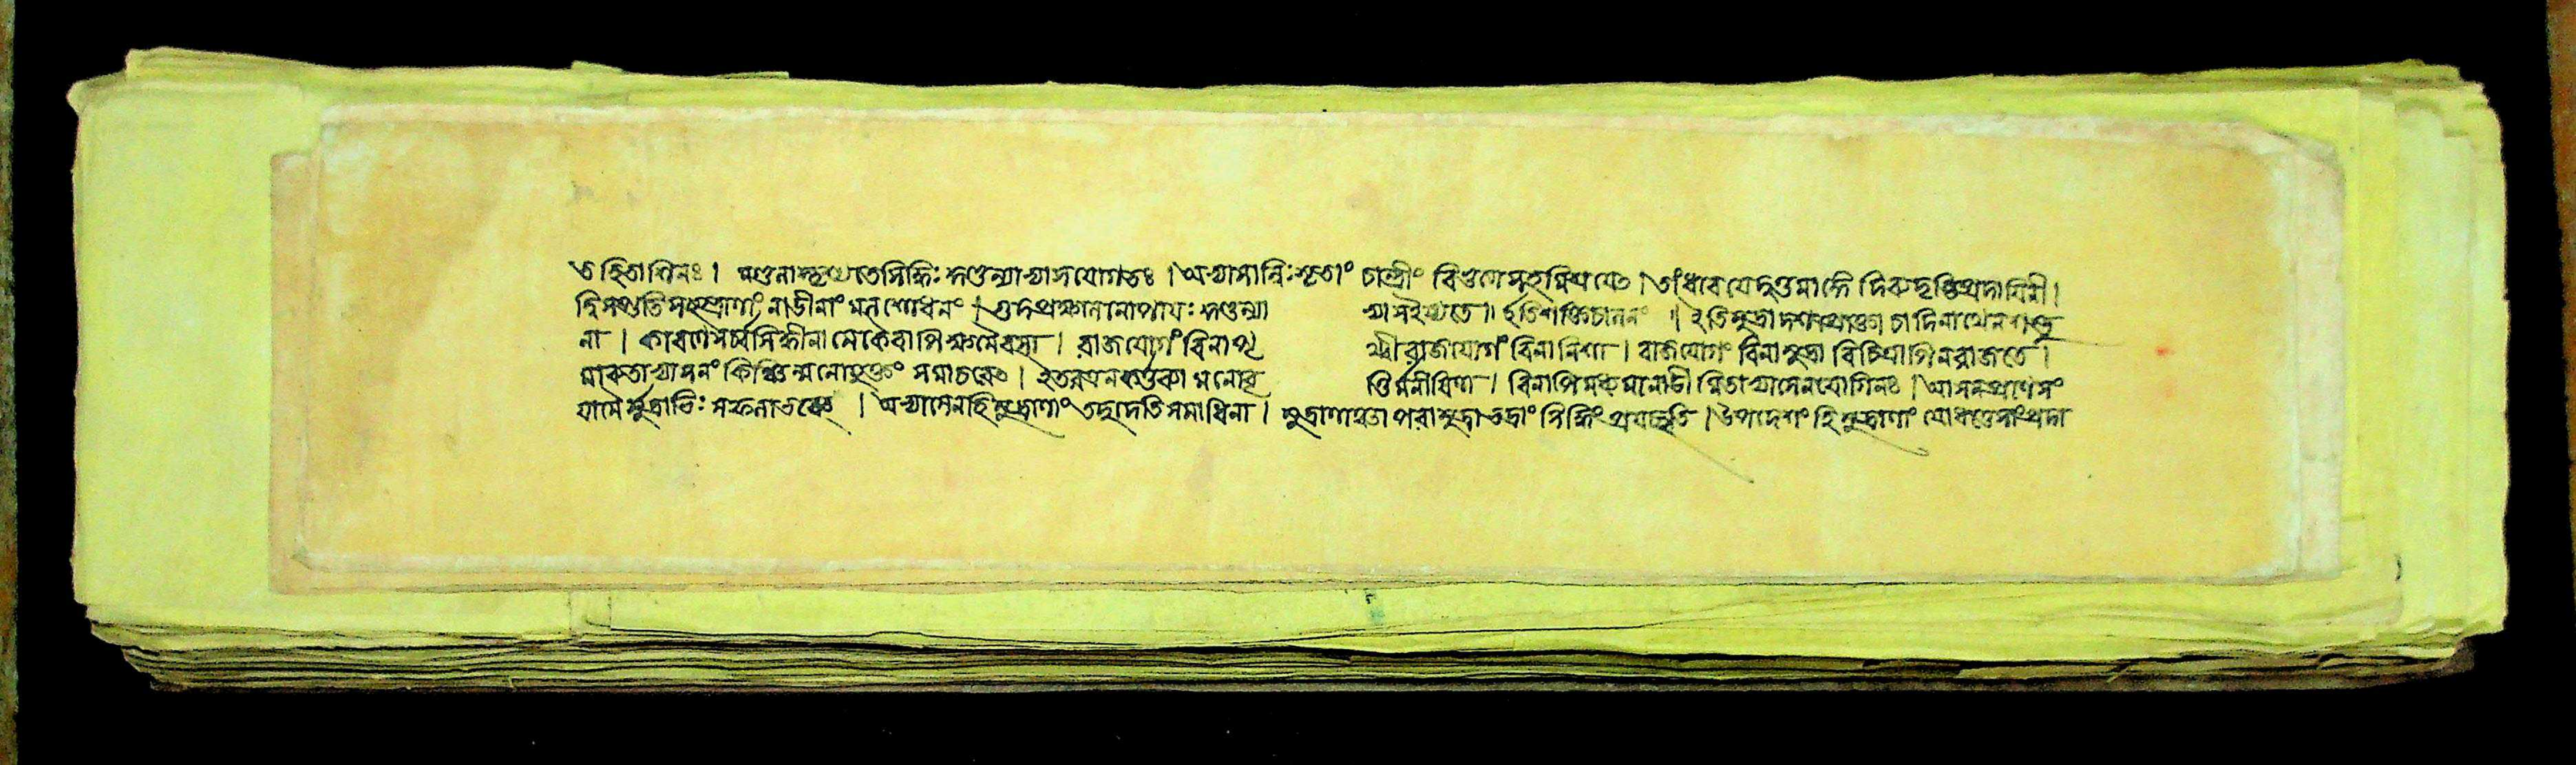 ত হিতাশিনঃ। মণ্ডলাদ্দৃশ্যতে সিদ্ধিঃ কুণ্ডল্যাভ্যাসযোগতঃ। অভ্যাসান্নিঃসৃতাং চান্দ্রীং বিভূত্যা সহ মিশ্রয়েৎ। তাং ধারয়েদুত্তমাঙ্গে দিব্যদৃষ্টিপ্রদায়িনী।
দ্বিসপ্ততিসহস্রাণাং নাডীনাং মলশোধনং। প্রক্ষালনোপায়ঃ কুণ্ডল্যা ভ্যাস ইষ্যতে॥ ইতি শক্তিচালনং॥ ইতি মুদ্রা দশ প্রোক্তা চাদিনাথেন শম্ভু
না। সর্বসিদ্ধীনামেকৈবাপি রাজযোগং বিনা পৃ থ্বী রাজযোগং বিনা নিশা। রাজযোগং বিনা মুদ্রা বিচিত্রাপি ন রাজতে।
মারুতাভ্যাসনং কিঞ্চিন্মনোযুক্তং সমাচরেৎ। ইতরত্র ন কর্তব্যা মনোবৃ ত্তির্মনীষিণা। বিনাপি মধ্যমা নাডী হিতাভ্যাসেন যোগিনঃ। আসনপ্রাণসং
যামৈর্মুদ্রাভিঃ সফলা ভবেৎ। অভ্যাসেন হি মুদ্রাণাং সমাধিনা। মুদ্রাণাং পরা মুদ্রা ভদ্রাং সিদ্ধিং প্রযচ্ছতি। উপদেশং হি মুদ্রাণাং যো ধত্তে সাংপ্রদা